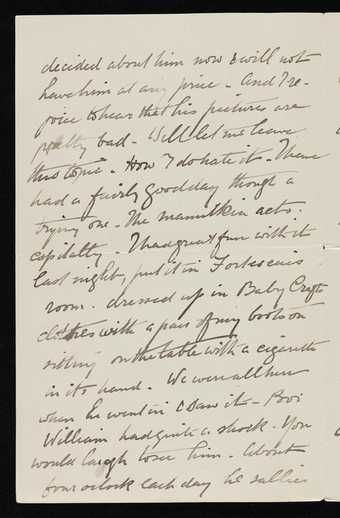 decided about him now & will not
have him at any price - And I re-
joice to hear that his pictures are
pretty bad - Well let me leave
this topic - How I do hate it - I have
had a fairly good day though a
trying one. The mannikin acts
capitally. I had great fun with it
last night, put it in Fortescues
room. dressed up in Baby
clothes with a pair of my boots on
sitting on the table with a cigarette
in its hand - We were all here
when he went in & saw it -
William had quite a shock. You
would laugh to see him. About
four oclock each day he sallies